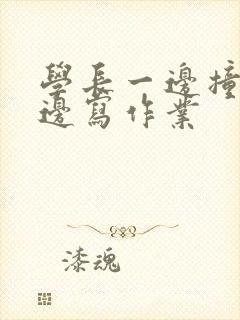 學長一邊撞
邊寫作業
漆魂